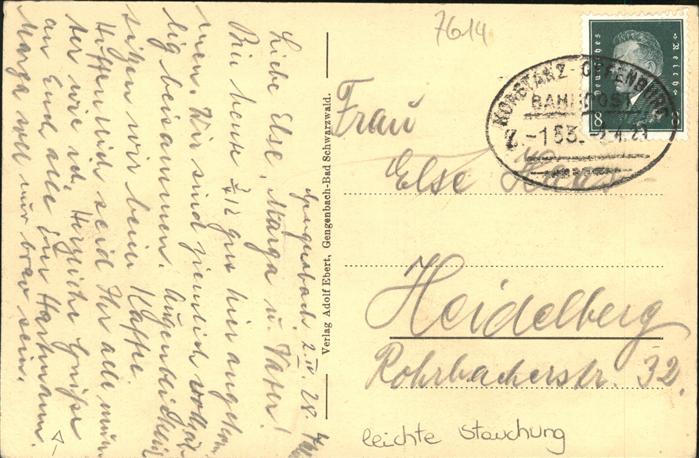 7614
Deutsches Reich
8 8
KONSTANZ-OFFENBURG
BAHNPOST
Z. 153.
Frau
Else
Heidelberg
Rohrbacherstr. 32.
leichte Stauchung
Verlag Adolf Ebert, Gengenbach-Bad Schwarzwald.
Gengenbach 2.IV. 28
Liebe Else, Marga u. Vater!
Bin heute gut hier angekom
men. Wir sind ziemlich vollzäh
lig beisammen. Augenblicklich
sitzen wir beim Kaffe.
Hoffentlich seid Ihr alle mun
ter wie ich. Herzliche Grüße
an Euch alle Euer Hartmann.
Marga soll nur brav sein.